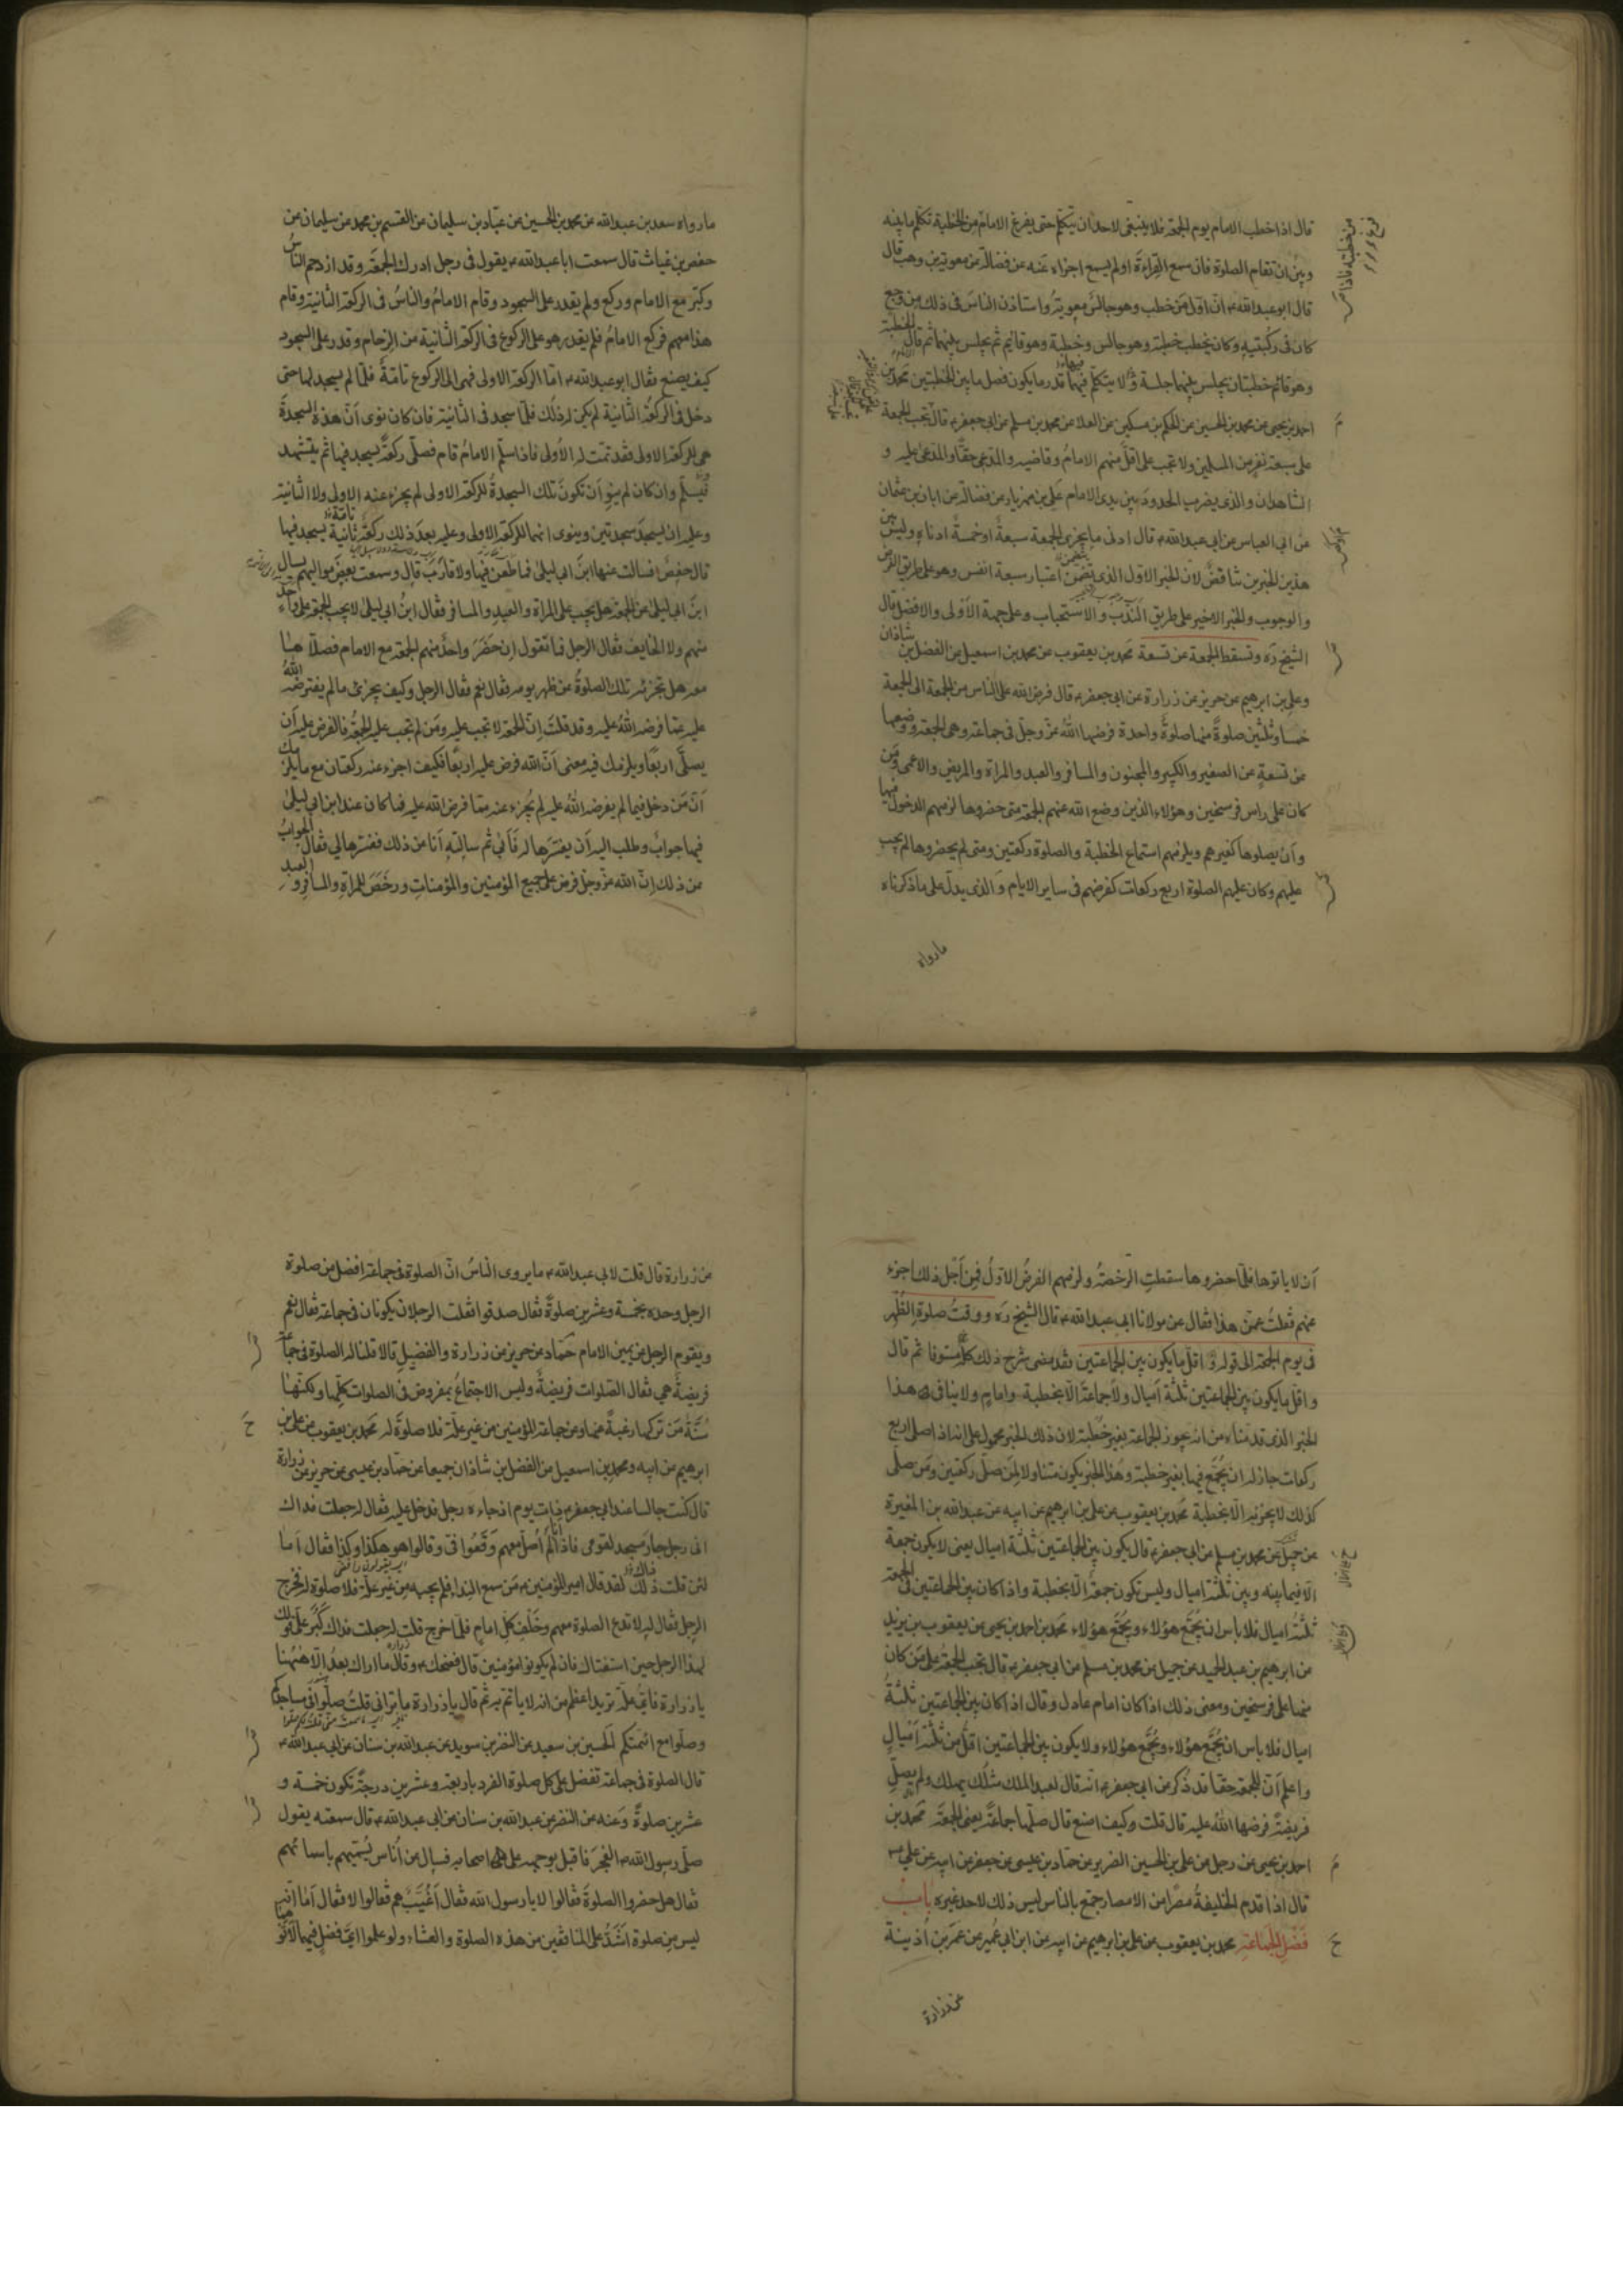 قال اذا خطب الامام يوم الجمعة فلا ينبغى لاحد ان يتكلم حتى يفرغ الامام من الخطبة تكلم ما بينه
وبين ان تقام الصلوة فان سمع القراءة او لم يسمع اجزاه عنه عن فضالة عن معوية بن وهب قال
قال ابو عبد الله ع ان اول من خطب وهو جالس معوية واستاذن الناس فى ذلك من وجع
كان فى ركبتيه وكان يخطب خطبة وهو جالس وخطبة وهو قائم ثم يجلس بينهما ثم قال الخطبة
وهو قائم خطبتان يجلس بينهما جلسة ولا يتكلم فيها قدر ما يكون فصل ما بين الخطبتين محمد بن
احمد بن يحيى عن محمد بن الحسين عن الحكم بن مسكين عن العلا عن محمد بن مسلم عن ابى جعفر ع قال تجب الجمعة
على سبعة نفر من المسلمين ولا تجب على اقل منهم الامام وقاضيه والمدعى حقا والمدعى عليه و
الشاهدان والذى يضرب الحدود بين يدى الامام على بن مهزيار عن فضالة عن ابان بن عثمان
عن ابى العباس عن ابى عبد الله ع قال ادنى ما يجزى الجمعة سبعة او خمسة ادناه وليس بين
هذين الخبرين تناقض لان الخبر الاول الذى يتضمن اعتبار سبعة انفس وهو على طريق الفرض
والوجوب والخبر الاخير على طريق الندب والاستحباب وعلى جهة الاولى والافضل قال
الشيخ ره وتسقط الجمعة عن تسعة محمد بن يعقوب عن محمد بن اسمعيل عن الفضل بن شاذان
وعلى بن ابرهيم عن حريز عن زرارة عن ابى جعفر ع قال فرض الله على الناس من الجمعة الى الجمعة
خمسا وثلثين صلوة منها صلوة واحدة فرضها الله عز وجل فى جماعة وهى الجمعة ووضعها
عن تسعة عن الصغير والكبير والمجنون والمسافر والعبد والمراة والمريض والاعمى ومن
كان على راس فرسخين وهؤلاء الذين وضع الله عنهم الجمعة متى حضروها لزمهم الدخول فيها
وان يصلوها كغيرهم ويلزمهم استماع الخطبة والصلوة ركعتين ومتى لم يحضروها لم يجب
عليهم وكان عليهم الصلوة اربع ركعات كفرضهم فى ساير الايام والذى يدل على ما ذكرناه
مارواه
مارواه سعد بن عبد الله عن محمد بن الحسين عن عباد بن سليمان عن القسم بن محمد عن سليمان عن
حفص بن غياث قال سمعت ابا عبد الله ع يقول فى رجل ادرك الجمعة وقد ازدحم الناس
وكبر مع الامام وركع ولم يقدر على السجود وقام الامام والناس فى الركعة الثانية وقام
هذا معهم فركع الامام فلم يقدر هو على الركوع فى الركعة الثانية من الزحام وقدر على السجود
كيف يصنع فقال ابو عبد الله ع اما الركعة الاولى فهى الى الركوع تامة فلما لم يسجد لها حتى
دخل فى الركعة الثانية لم يكن له ذلك فلما سجد فى الثانية فان كان نوى ان هذه السجدة
هى للركعة الاولى فقد تمت له الاولى فاذا سلم الامام قام فصلى ركعة يسجد فيها ثم يتشهد
ويسلم وان كان لم ينو ان تكون تلك السجدة للركعة الاولى لم يجزء عنه الاولى ولا الثانية
وعليه ان يسجد سجدتين وينوى انهما للركعة الاولى وعليه بعد ذلك ركعة تامة ثانية يسجد فيها
قال حفص فسالت عنها ابن ابى ليلى فما طعن فيها ولا قارب قال وسمعت بعض مواليهم يسال
ابن ابى ليلى عن الجمعة هل يجب على المراة والعبد والمسافر فقال ابن ابى ليلى لا يجب الجمعة على واحد
منهم ولا الخايف فقال الرجل فما تقول ان حضر واحد منهم الجمعة مع الامام فصلاها
معه هل تجزئه تلك الصلوة عن ظهر يومه فقال نعم فقال الرجل وكيف يجزئ ما لم يفترضه الله
عليه عما فرضه الله عليه وقد قلت ان الجمعة لا تجب عليه ومن لم تجب عليه الجمعة فالفرض عليه ان
يصلى اربعا ويلزمك فيه معنى ان الله فرض عليه اربعا فكيف اجزء عنه ركعتان مع ما يلزمك
ان من دخل فيما لم يفرضه الله عليه لم يجزء عنه مما فرض الله عليه فما كان عند ابن ابى ليلى
فيها جواب وطلب اليه ان يفسرها له فابى ثم سالته انا عن ذلك ففسرها لى فقال الجواب
عن ذلك ان الله عز وجل فرض على جميع المؤمنين والمؤمنات ورخص للمراة والمسافر والعبد
ان لا ياتوها فلما حضروها سقطت الرخصة ولزمهم الفرض الاول فمن اجل ذلك اجزء
عنهم فقلت عمن هذا فقال عن مولانا ابى عبد الله ع قال الشيخ ره ووقت صلوة الظهر
فى يوم الجمعة الى قوله واقل ما يكون بين الجماعتين فقد مضى شرح ذلك كله مستوفا ثم قال
واقل ما يكون بين الجماعتين ثلثة اميال ولا جماعة الا بخطبة وامام ولا ينافى هذا
الخبر الذى قدمناه من انه يجوز الجماعة بغير خطبة لان ذلك الخبر محمول على انه اذا صلى اربع
ركعات جاز له ان يجمع فيها بغير خطبة وهذا الخبر يكون متناولا لمن صلى ركعتين ومن صلى
كذلك لا يجزئه الا بخطبة محمد بن يعقوب عن على بن ابرهيم عن ابيه عن عبد الله بن المغيرة
عن جميل عن محمد بن مسلم عن ابى جعفر ع قال يكون بين الجماعتين ثلثة اميال يعنى لا يكون جمعة
الا فيما بينه وبين ثلثة اميال وليس تكون جمعة الا بخطبة واذا كان بين الجماعتين فى الجمعة
ثلثة اميال فلا باس ان يجمع هؤلاء ويجمع هؤلاء محمد بن احمد بن يحيى عن يعقوب بن يزيد
عن ابرهيم بن عبد الحميد عن جميل عن محمد بن مسلم عن ابى جعفر ع قال تجب الجمعة على من كان
منها على فرسخين ومعنى ذلك اذا كان امام عادل وقال اذا كان بين الجماعتين ثلثة
اميال فلا باس ان يجمع هؤلاء ويجمع هؤلاء ولا يكون بين الجماعتين اقل من ثلثة اميال
واعلم ان للجمعة حقا قد ذكر عن ابى جعفر ع انه قال لعبد الملك مثلك يهلك ولم يصل
فريضة فرضها الله عليه قال قلت وكيف اصنع قال صلها جماعة يعنى الجمعة محمد بن
احمد بن يحيى عن رجل عن على بن الحسين الضرير عن حماد بن عيسى عن جعفر عن ابيه عن على ع
قال اذا قدم الخليفة مصرا من الامصار جمع بالناس ليس ذلك لاحد غيره باب
فضل الجماعة محمد بن يعقوب عن على بن ابرهيم عن ابيه عن ابن ابى عمير عن عمر بن اذينة
عن زرارة
عن زرارة قال قلت لابى عبد الله ع ما يروى الناس ان الصلوة فى جماعة افضل من صلوة
الرجل وحده بخمسة وعشرين صلوة فقال صدقوا فقلت الرجلان يكونان فى جماعة فقال نعم
ويقوم الرجل عن يمين الامام حماد عن حريز عن زرارة والفضيل قالا قلنا له الصلوة فى جماعة
فريضة هى فقال الصلوات فريضة وليس الاجتماع بمفروض فى الصلوات كلها ولكنها
سنة من تركها رغبة عنها وعن جماعة المؤمنين من غير علة فلا صلوة له محمد بن يعقوب عن على بن
ابرهيم عن ابيه ومحمد بن اسمعيل عن الفضل بن شاذان جميعا عن حماد بن عيسى عن حريز عن زرارة
قال كنت جالسا عند ابى جعفر ع ذات يوم اذ جاءه رجل فدخل عليه فقال له جعلت فداك
انى رجل جار مسجد لقومى فاذا انا لم اصل معهم وقعوا فى وقالوا هو هكذا وكذا فقال اما
لئن قلت ذلك لقد قال امير المؤمنين ع من سمع النداء فلم يجبه من غير علة فلا صلوة له فخرج
الرجل فقال له لا تدع الصلوة معهم وخلف كل امام فلما خرج قلت له جعلت فداك كبر على قولك
لهذا الرجل حين استفتاك فان لم يكونوا مؤمنين قال فضحك ع وقال ما اراك بعد الا ههنا
يا زرارة فاى علة تريد اعظم من انه لا ياتم به ثم قال يا زرارة ما ترانى قلت صلوا فى مساجدكم
وصلوا مع ائمتكم الحسين بن سعيد عن النضر بن سويد عن عبد الله بن سنان عن ابى عبد الله ع
قال الصلوة فى جماعة تفضل على كل صلوة الفرد باربعة وعشرين درجة تكون خمسة و
عشرين صلوة وعنه عن النضر عن عبد الله بن سنان عن ابى عبد الله ع قال سمعته يقول
صلى رسول الله ص الفجر فاقبل بوجهه على اصحابه فسال عن اناس يسميهم باسمائهم
فقال هل حضروا الصلوة فقالوا لا يا رسول الله فقال اغيب هم فقالوا لا فقال اما انه
ليس من صلوة اشد على المنافقين من هذه الصلوة والعشاء ولو علموا اى فضل فيهما لاتوهما